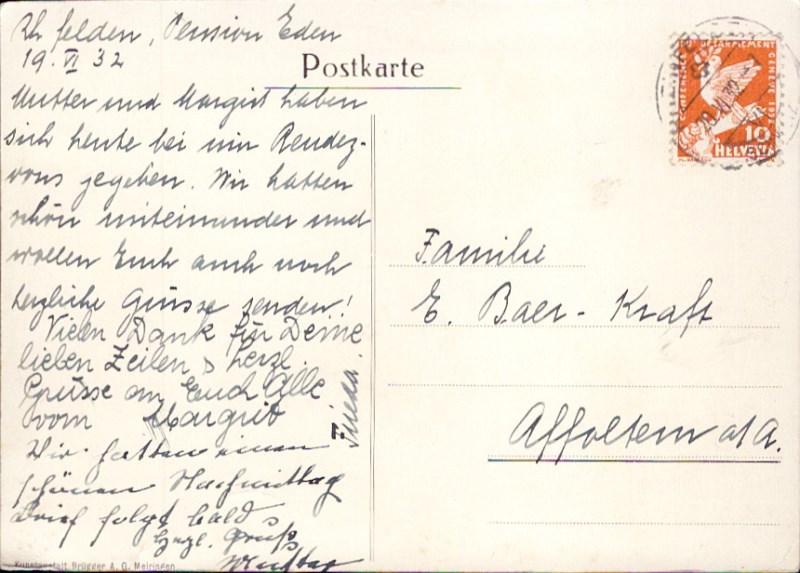 Rh felden, Pension Eden
19. VI 32
Postkarte
Mutter und Margrit haben
sich heute bei mir Rendez-
vous gegeben. Wir hatten
schön miteinander und
wollen Euch auch noch
herzliche Grüsse senden!
Frieda.
Vielen Dank für Deine
lieben Zeilen & herzl.
Grüsse an Euch Alle
vom Margrit
Wir hatten einen
schönen Nachmittag
Brief folgt bald
Herzl. Gruss
Mutter
Kunstanstalt Brügger A. G. Meiringen.
GENEVE 1932
10
HELVETIA
Familie
E. Baer-Kraft
Affoltern a/A.